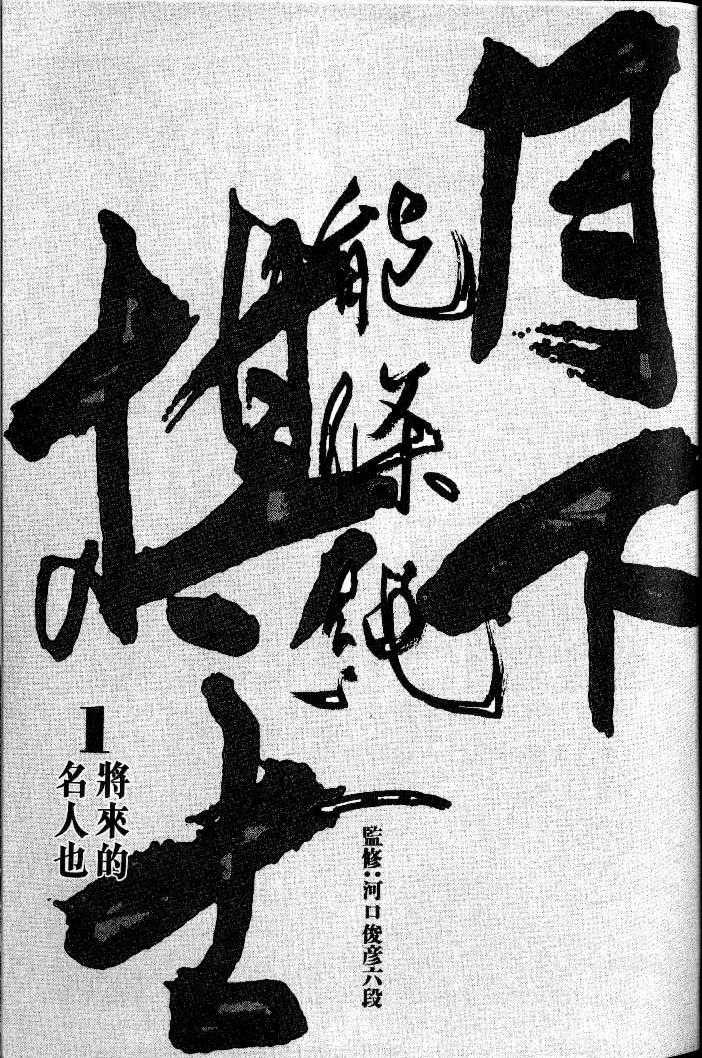 月下
棋士
能條純一
監修：河口俊彦六段
1
將來的
名人也